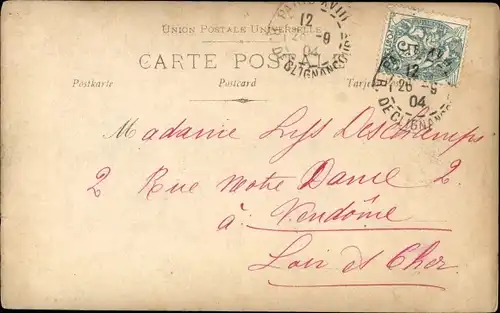 UNION POSTALE UNIVERSELLE
CARTE POSTALE
Postkarte Postcard Tarjeta
PARIS XVIII
12
26 - 9
04
R. DE CLIGNANCOURT
12
26 - 9
04
R. DE CLIGNANCOURT
5
Madame Lys Deschamps
2 Rue Notre Dame 2.
à Vendôme
Loir et Cher